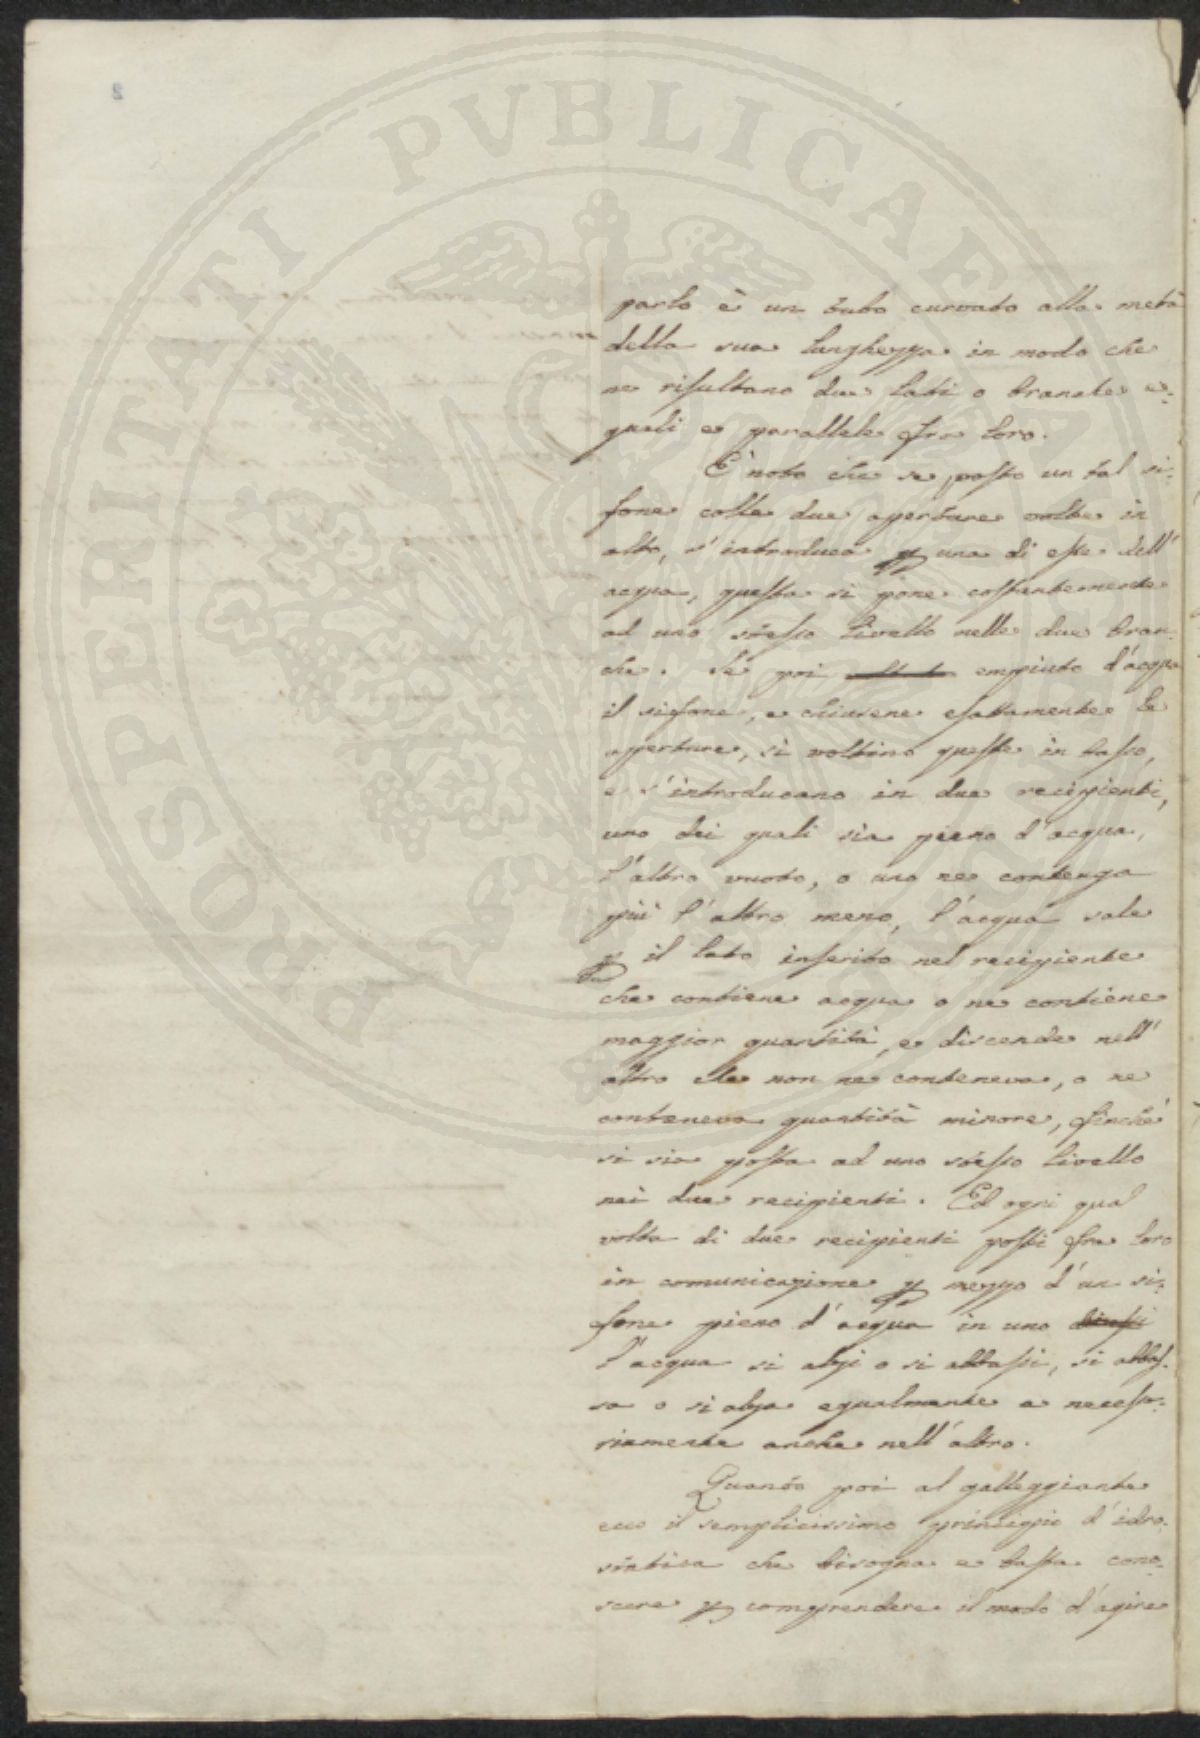 PROSPERITATI PVBLICAE
2
parlo è un tubo curvato alla metà
della sua lunghezza in modo che
ne risultano due lati o branche e-
guali e parallele fra loro.
È noto che se, posto un tal si-
fone colle due aperture volte in
alto, s'introduca p una di esse dell'
acqua, questa si pone costantemente
ad uno stesso livello nelle due bran-
che. Se poi empiuto d'acqua
il sifone, e chiusene esattamente le
aperture, si voltino queste in basso,
e s'introducano in due recipienti,
uno dei quali sia pieno d'acqua,
l'altro vuoto, o uno ne contenga
più l'altro meno, l'acqua sale
p il lato inserito nel recipiente
che contiene acqua o ne contiene
maggior quantità, e discende nell'
altro che non ne conteneva, o ne
conteneva quantità minore, finché
si sia posta ad uno stesso livello
nei due recipienti. Ed ogni qual
volta di due recipienti posti fra loro
in comunicazione p mezzo d'un si-
fone pieno d'acqua in uno
l'acqua si alzi o si abbassi, si abbas-
sa o si alza egualmente e necessa-
riamente anche nell'altro.
Quanto poi al galleggiante
ecco il semplicissimo principio d'idro-
statica che bisogna e basta cono-
scere p comprendere il modo d'agire